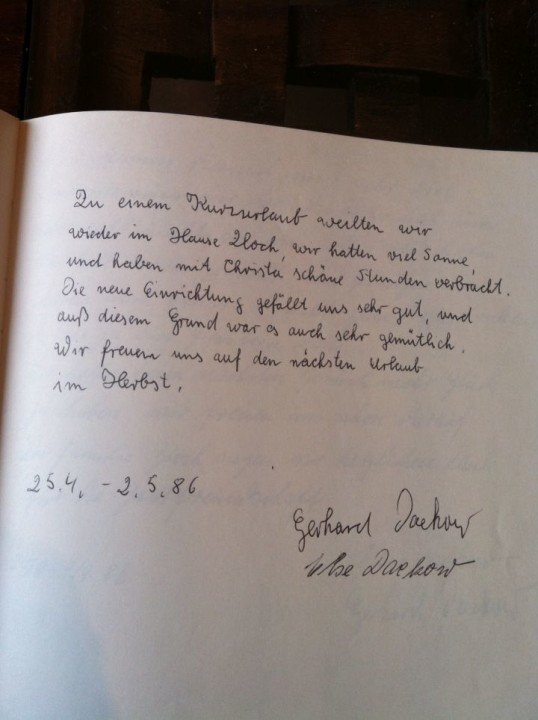 Zu einem Kurzurlaub weilten wir
wieder im Hause Bloch, wir hatten viel Sonne,
und haben mit Christa schöne Stunden verbracht.
Die neue Einrichtung gefällt uns sehr gut, und
auß diesem Grund war es auch sehr gemütlich.
Wir freuen uns auf den nächsten Urlaub
im Herbst.
25.4. - 2.5.86
Gerhard Dackow
Dackow